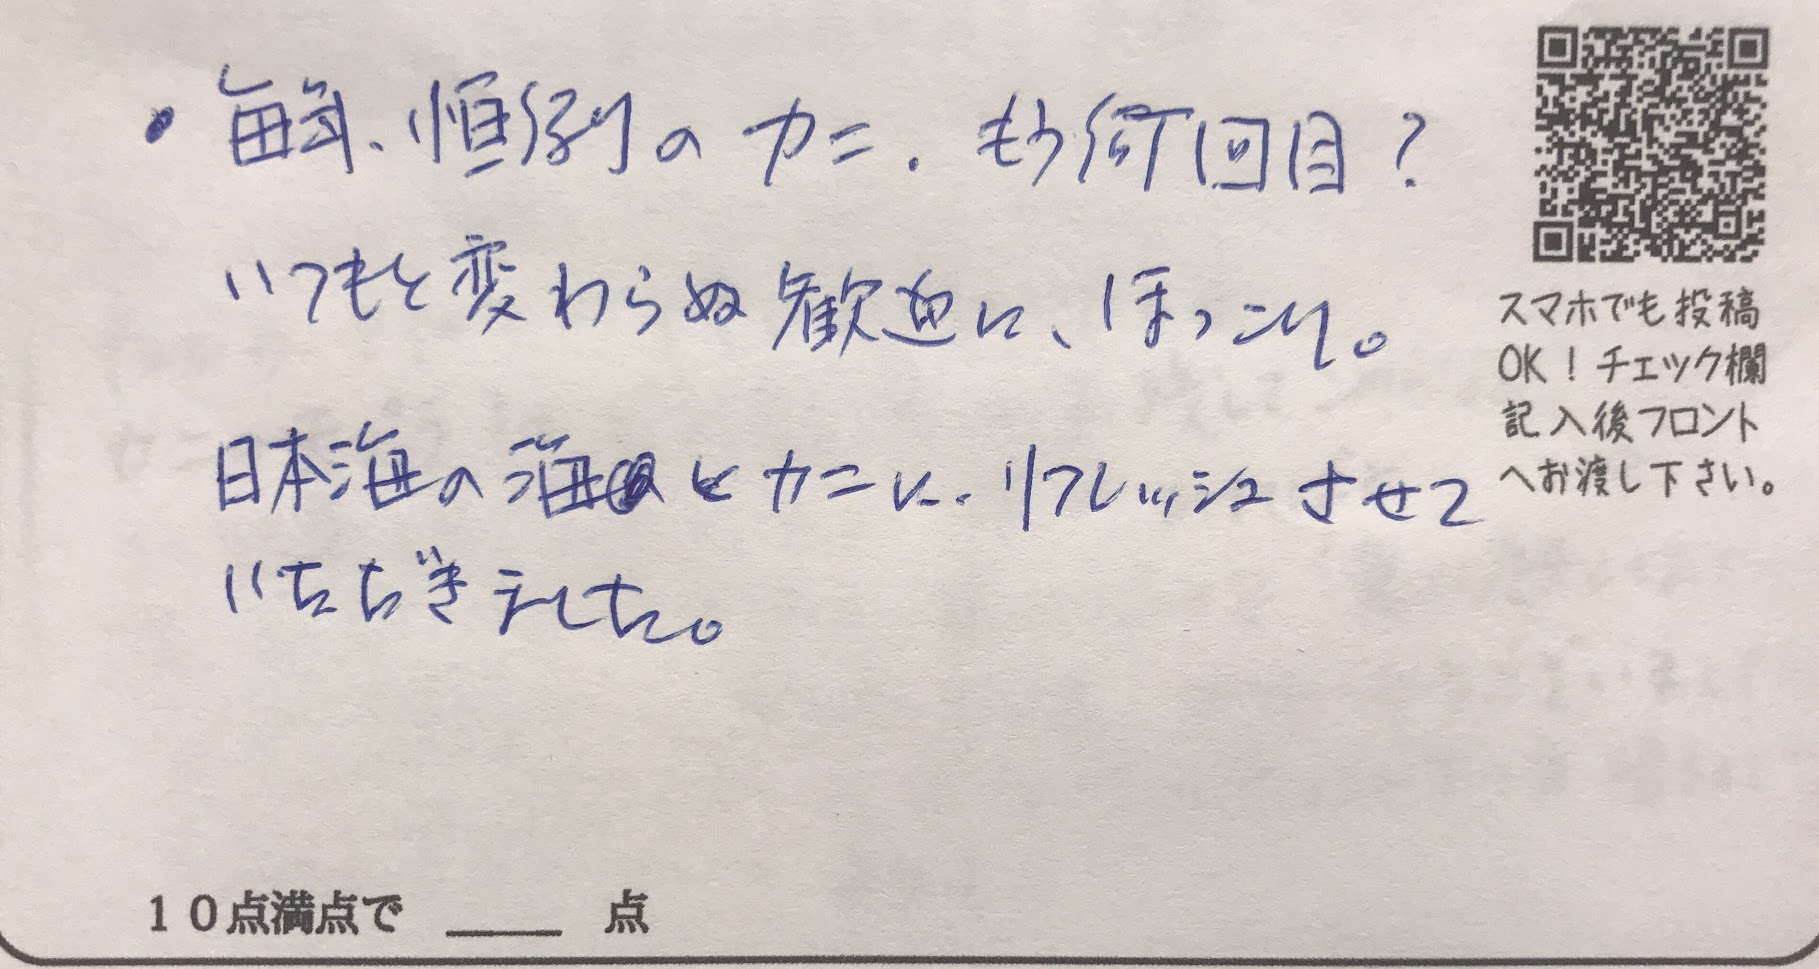 ・毎年、恒例のカニ、もう何回目?
いつもと変わらぬ歓迎に、ほっこり。
日本海の海とカニに、リフレッシュさせて
いただきました。
スマホでも投稿
OK！チェック欄
記入後フロント
へお渡し下さい。
１０点満点で ____ 点